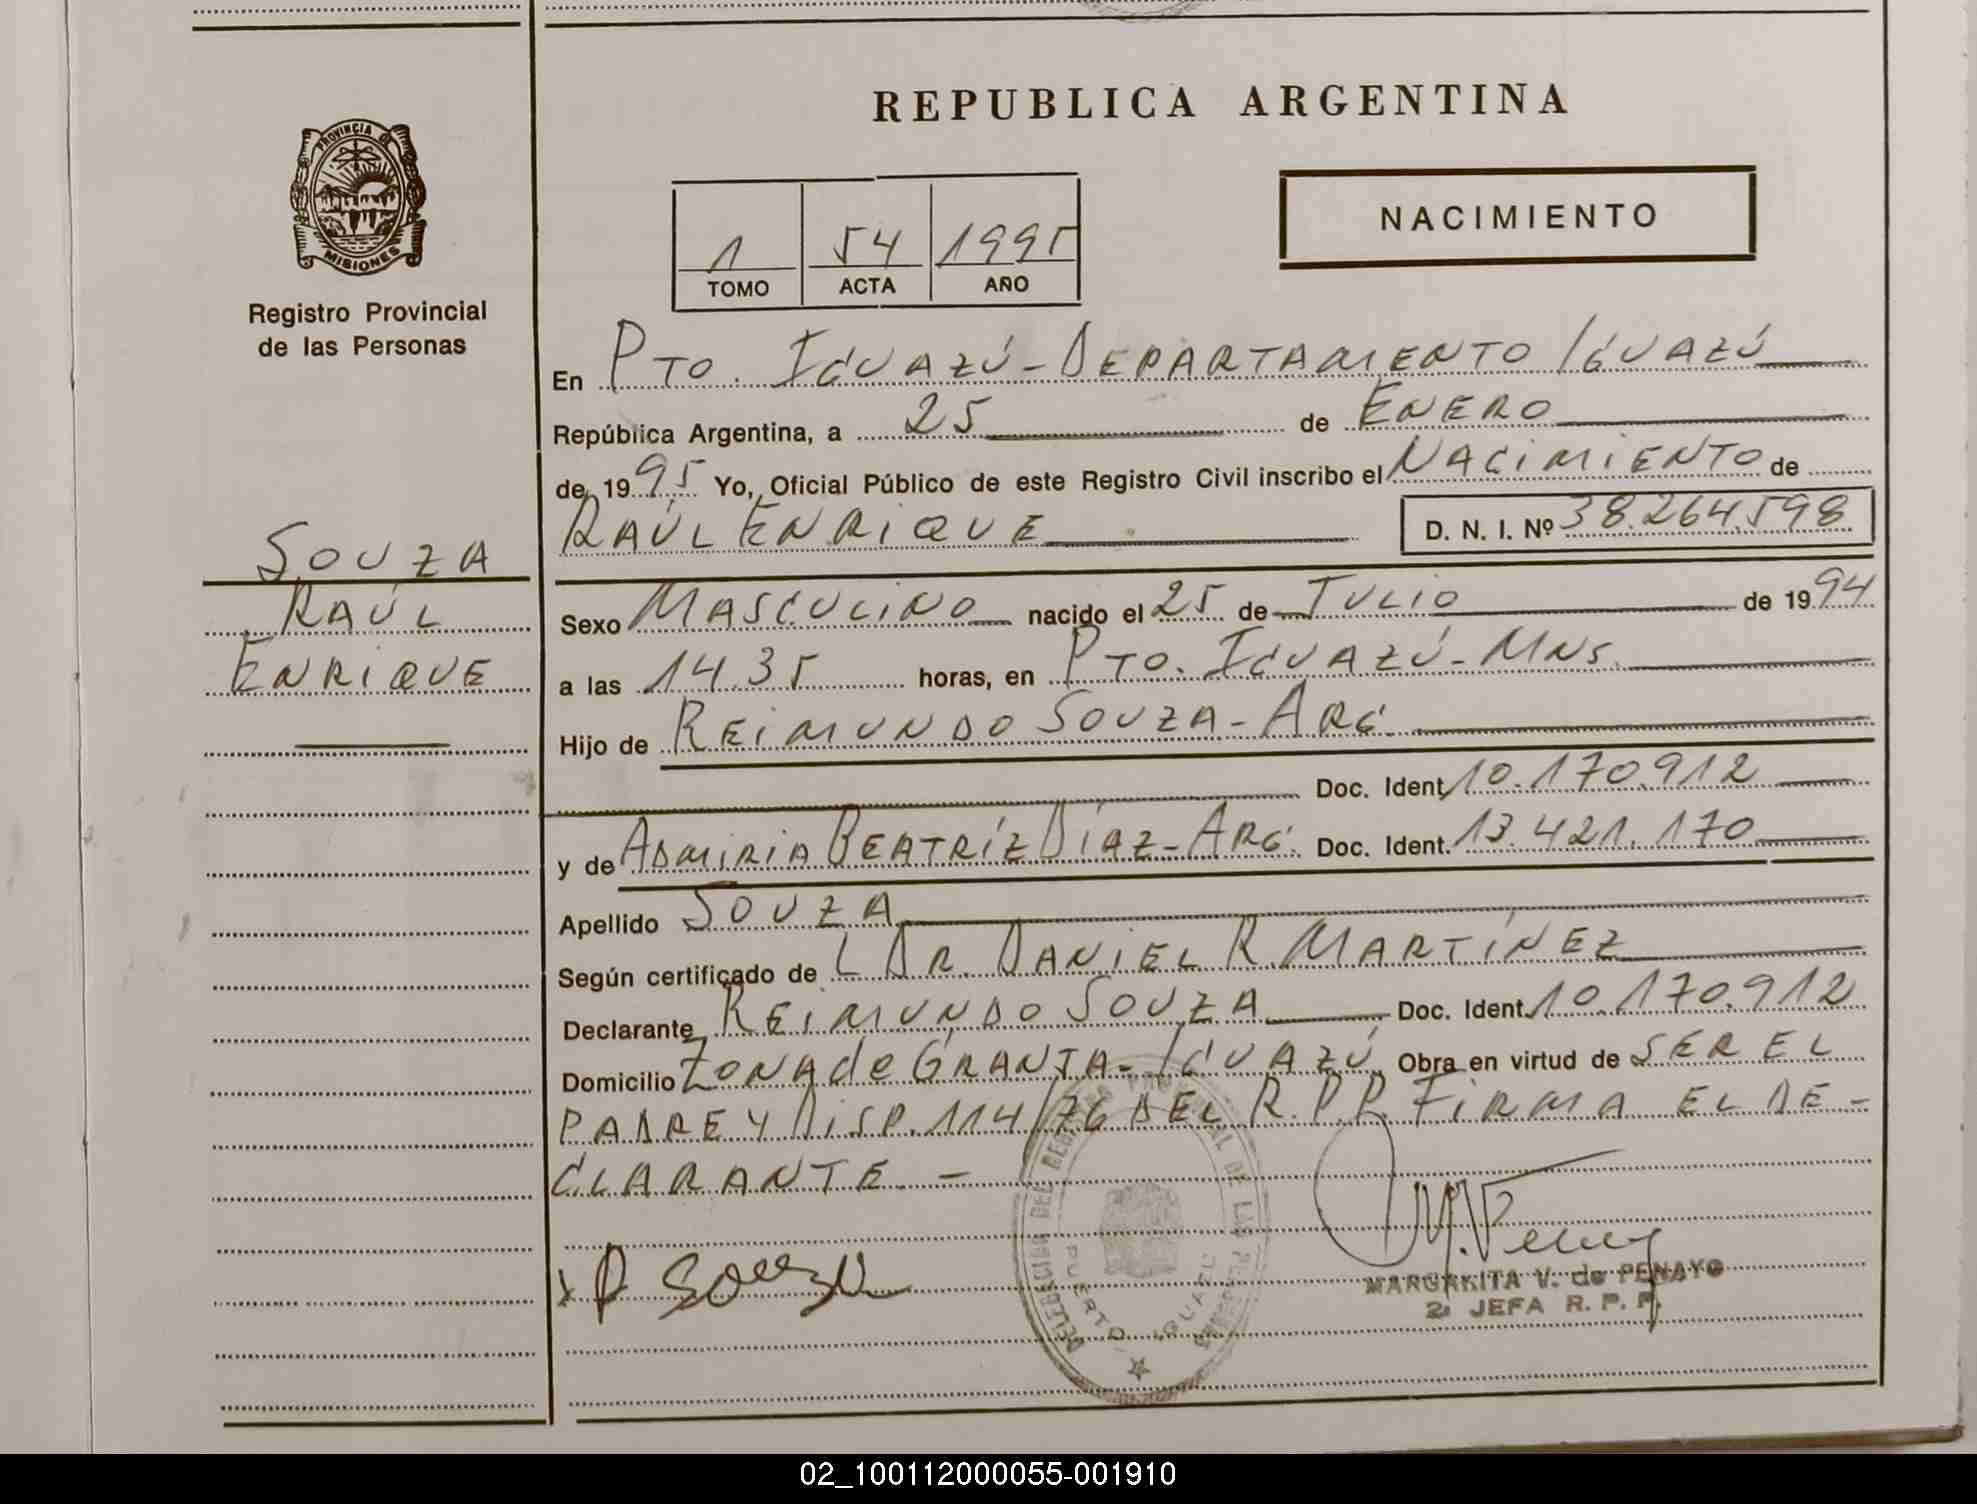 REPUBLICA ARGENTINA
PROVINCIA DE
MISIONES
Registro Provincial
de las Personas
NACIMIENTO
1 54 1995
TOMO ACTA AÑO
En PTO. IGUAZÚ - DEPARTAMENTO IGUAZÚ
República Argentina, a 25 de ENERO
de 1995 Yo, Oficial Público de este Registro Civil inscribo el NACIMIENTO de
RAÚL ENRIQUE D. N. I. Nº 38.264.598
SOUZA
RAÚL
ENRIQUE
Sexo MASCULINO nacido el 25 de JULIO de 1994
a las 14.35 horas, en PTO. IGUAZÚ - MNS.
Hijo de REIMUNDO SOUZA - ARG.
Doc. Ident. 10.170.912
y de ADMIRIA BEATRÍZ DÍAZ - ARG. Doc. Ident. 13.421.170
Apellido SOUZA
Según certificado de L DR. DANIEL R. MARTÍNEZ
Declarante REIMUNDO SOUZA Doc. Ident. 10.170.912
Domicilio ZONA de GRANJA - IGUAZÚ Obra en virtud de SER EL
PADRE Y DISP. 114/76 DEL R.P.P. FIRMA EL DE-
CLARANTE. -
DELEGACION DEL REGISTRO PROVINCIAL DE LAS PERSONAS
PUERTO IGUAZU
R Souza
MARGARITA V. de PENAYO
2ª JEFA R. P. P.
02_100112000055-001910